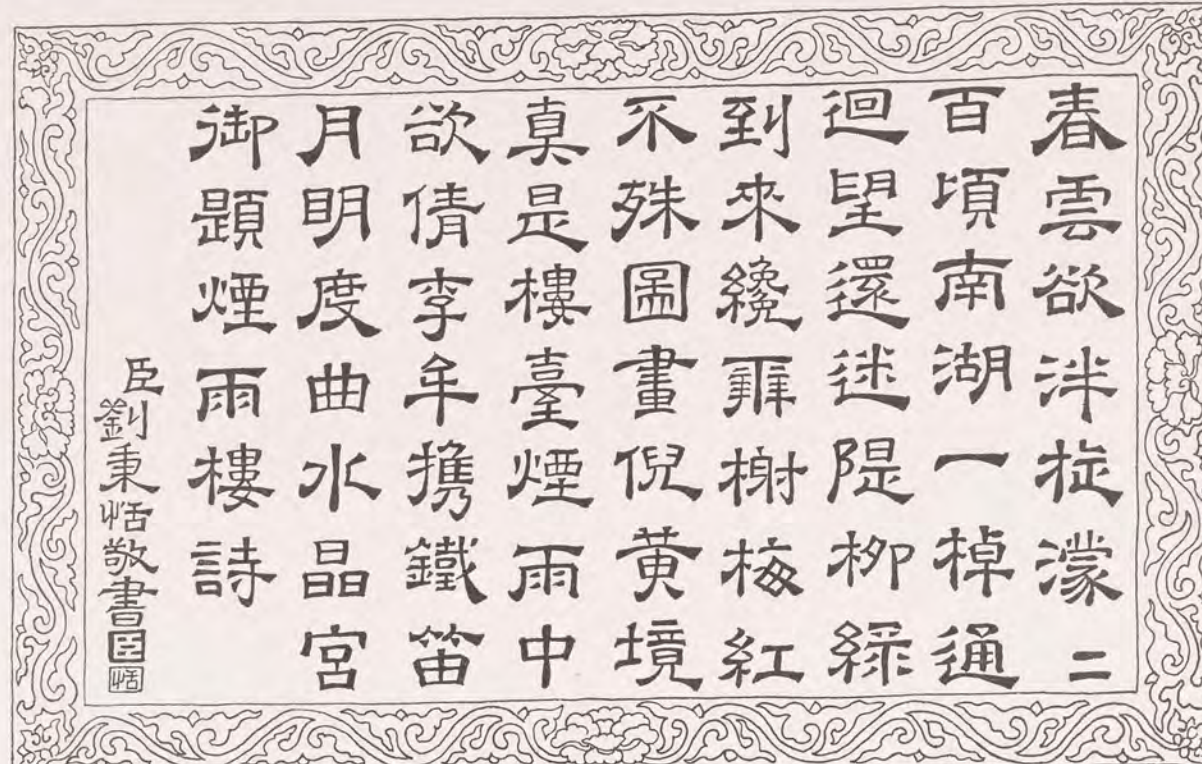 春雲欲泮旋濛二
百頃南湖一棹通
迴望還迷隄柳綠
到來纔辨榭梅紅
不殊圖畫倪黃境
真是樓臺煙雨中
欲倩李牟携鐵笛
月明度曲水晶宮
御題煙雨樓詩
臣劉秉恬敬書
臣
恬